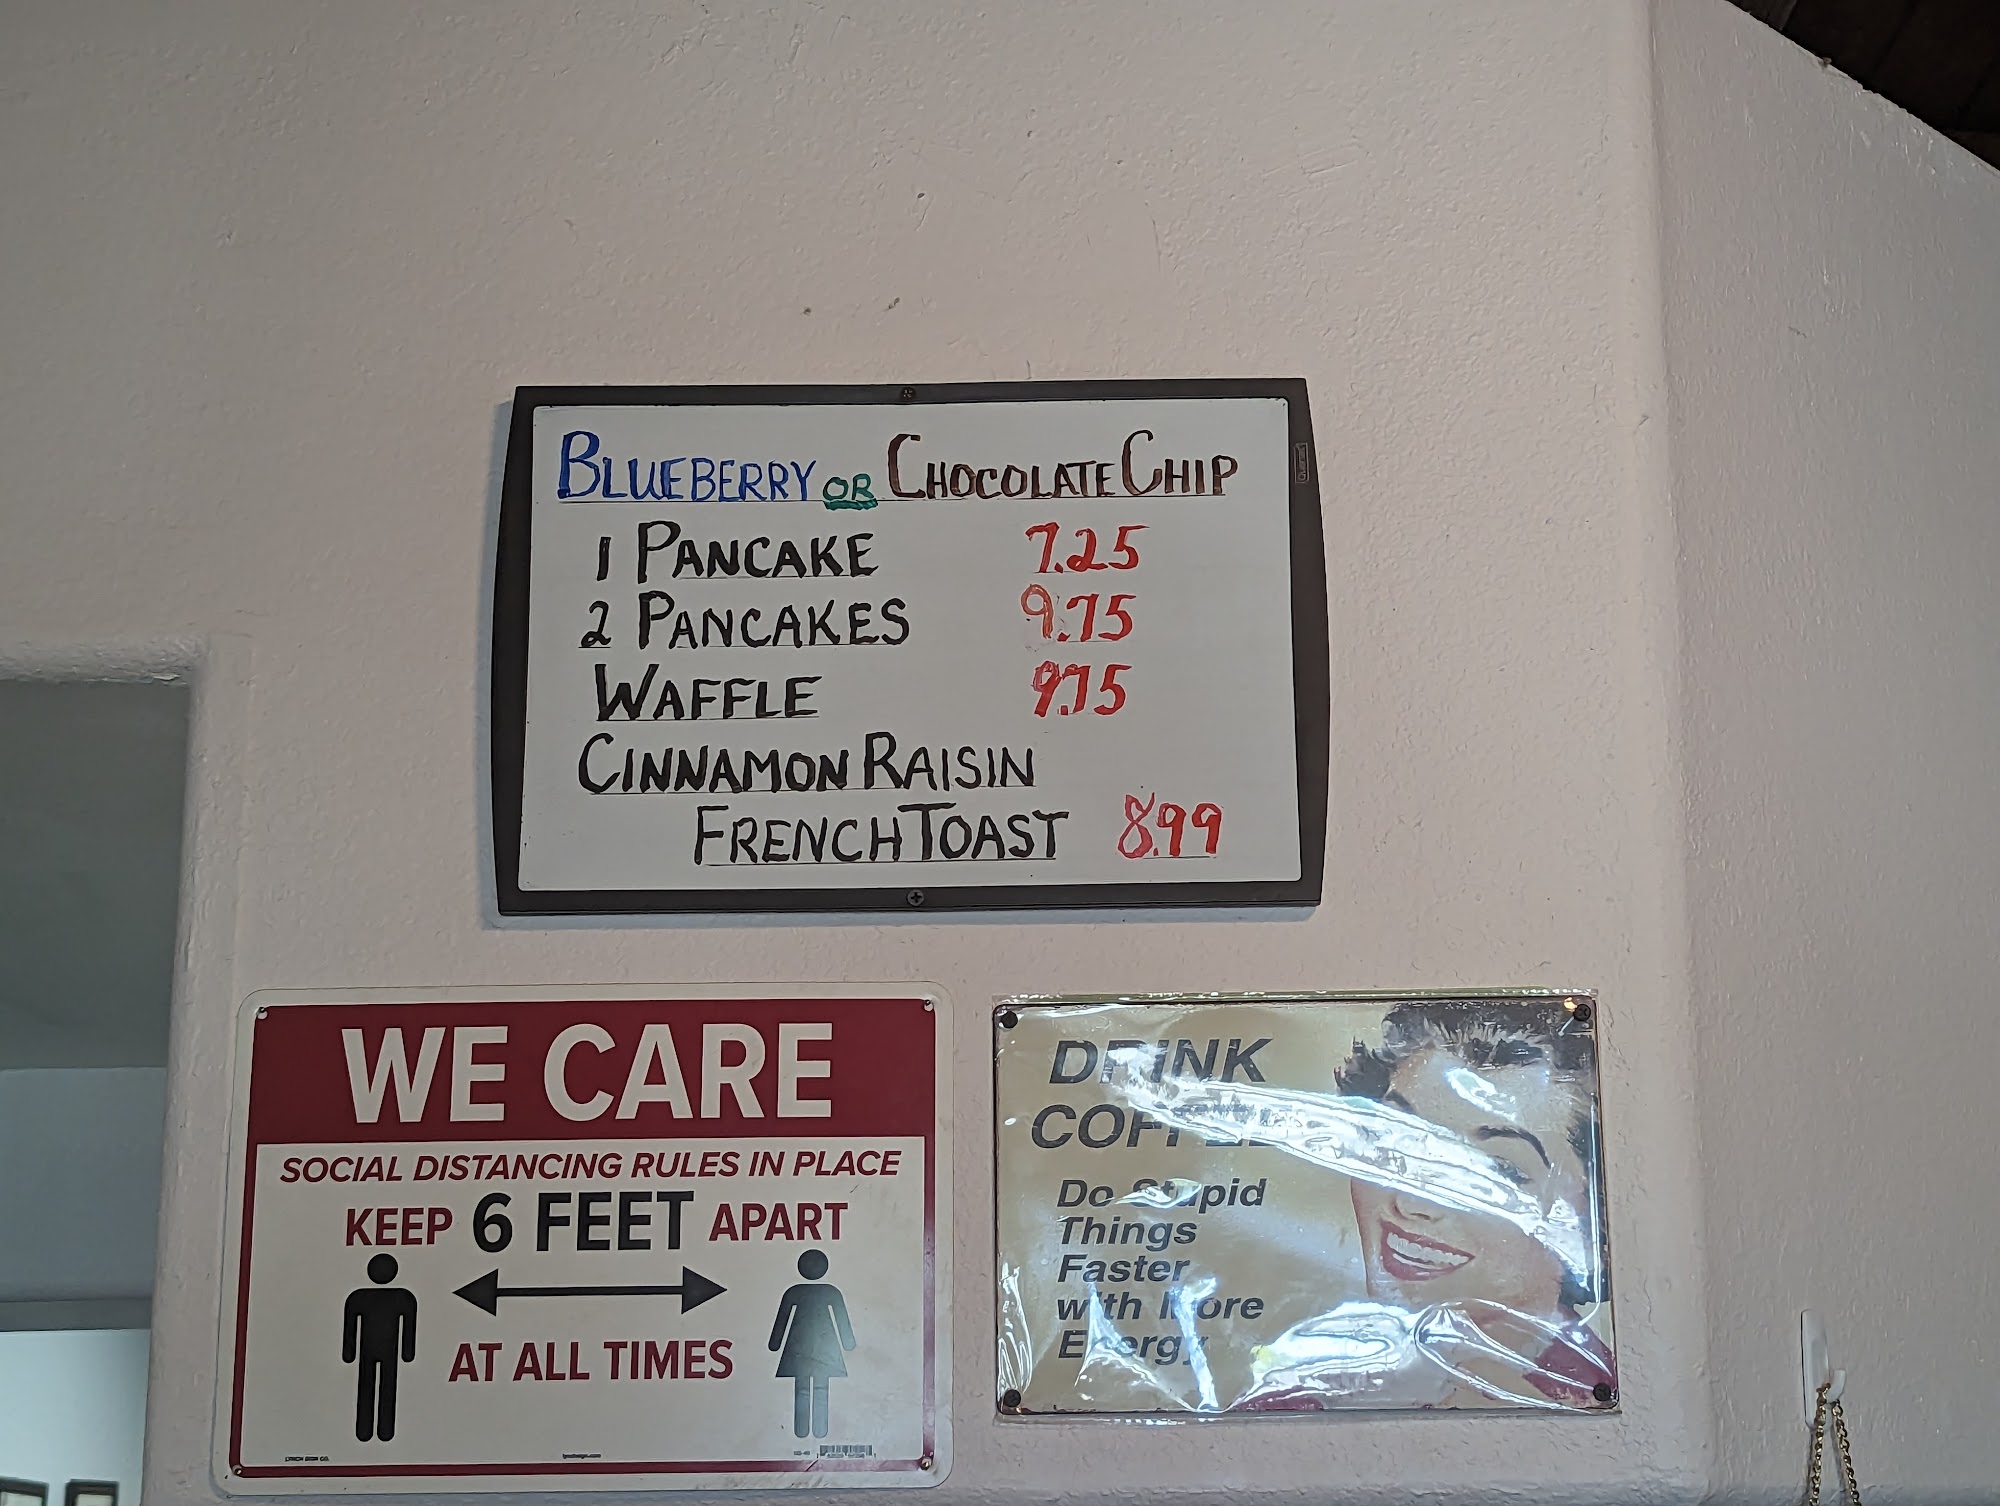 BLUEBERRY OR CHOCOLATE CHIP
1 PANCAKE 7.25
2 PANCAKES 9.75
WAFFLE 9.75
CINNAMON RAISIN
FRENCH TOAST 8.99
WE CARE
SOCIAL DISTANCING RULES IN PLACE
KEEP 6 FEET APART
AT ALL TIMES
LYNCH SIGN CO.
DRINK
COFFEE
Do Stupid
Things
Faster
with More
Energy